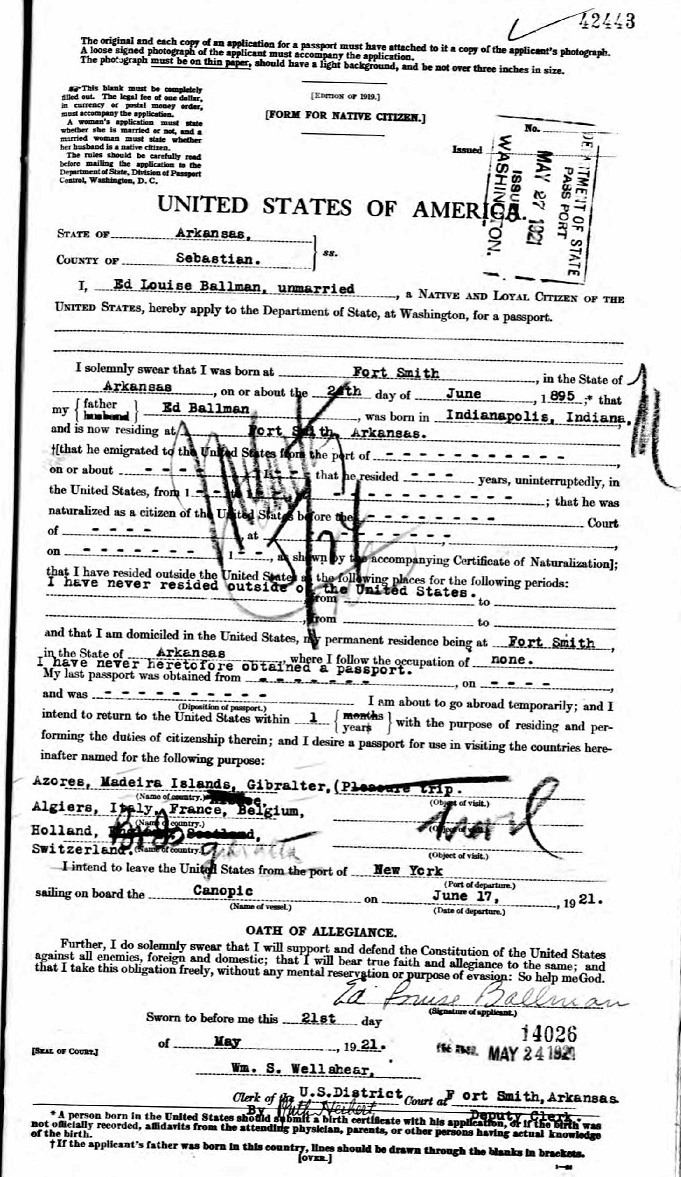 42443
The original and each copy of an application for a passport must have attached to it a copy of the applicant's photograph.
A loose signed photograph of the applicant must accompany the application.
The photograph must be on thin paper, should have a light background, and be not over three inches in size.
This blank must be completely
filled out. The legal fee of one dollar,
in currency or postal money order,
must accompany the application.
A woman's application must state
whether she is married or not, and a
married woman must state whether
her husband is a native citizen.
The rules should be carefully read
before mailing the application to the
Department of State, Division of Passport
Control, Washington, D. C.
[EDITION OF 1919.]
[FORM FOR NATIVE CITIZEN.]
No.
Issued
DEPARTMENT OF STATE
PASSPORT
MAY 27 1921
ISSUED
WASHINGTON.
UNITED STATES OF AMERICA.
STATE OF Arkansas,
COUNTY OF Sebastian.
ss.
I, Ed Louise Ballman, unmarried, a NATIVE AND LOYAL CITIZEN OF THE
UNITED STATES, hereby apply to the Department of State, at Washington, for a passport.
I solemnly swear that I was born at Fort Smith, in the State of
Arkansas, on or about the 24th day of June, 1895;* that
my {father husband} Ed Ballman, was born in Indianapolis, Indiana,
and is now residing at Fort Smith, Arkansas.
†[that he emigrated to the United States from the port of - - - - - - -
on or about - - - - - - 1 - - -, that he resided - - - years, uninterruptedly, in
the United States, from 1 - - - to 1 - - - - - - - - - - - - -; that he was
naturalized as a citizen of the United States before the - - - - - - - Court
of - - - -, at - - - - - - - - -,
on - - - - - - - 1 - - -, as shown by the accompanying Certificate of Naturalization];
that I have resided outside the United States at the following places for the following periods:
I have never resided outside of the United States.
from to
, from to
and that I am domiciled in the United States, my permanent residence being at Fort Smith,
in the State of Arkansas, where I follow the occupation of none.
I have never heretofore obtained a passport.
My last passport was obtained from - - - - - - -, on - - - -,
and was - - - - - - - - - - I am about to go abroad temporarily; and I
(Disposition of passport.)
intend to return to the United States within 1 {months years} with the purpose of residing and per-
forming the duties of citizenship therein; and I desire a passport for use in visiting the countries here-
inafter named for the following purpose:
Azores, Madeira Islands, Gibralter, (Pleasure trip.
(Name of country.) (Object of visit.)
Algiers, Italy, France, Belgium,
(Name of country.) (Object of visit.)
Holland, England, Scotland,
Switzerland. (Name of country.) (Object of visit.)
Gibralta
I intend to leave the United States from the port of New York
(Port of departure.)
sailing on board the Canopic on June 17, , 1921.
(Name of vessel.) (Date of departure.)
OATH OF ALLEGIANCE.
Further, I do solemnly swear that I will support and defend the Constitution of the United States
against all enemies, foreign and domestic; that I will bear true faith and allegiance to the same; and
that I take this obligation freely, without any mental reservation or purpose of evasion: So help me God.
Ed Louise Ballman
(Signature of applicant.)
Sworn to before me this 21st day
14026
of May, 1921.
MAY 24 1921
[SEAL OF COURT.]
Wm. S. Wellshear,
Clerk of the U.S. District Court at Fort Smith, Arkansas.
By Deputy Clerk.
* A person born in the United States should submit a birth certificate with his application, or if the birth was
not officially recorded, affidavits from the attending physician, parents, or other persons having actual knowledge
of the birth.
† If the applicant's father was born in this country, lines should be drawn through the blanks in brackets.
[OVER.]